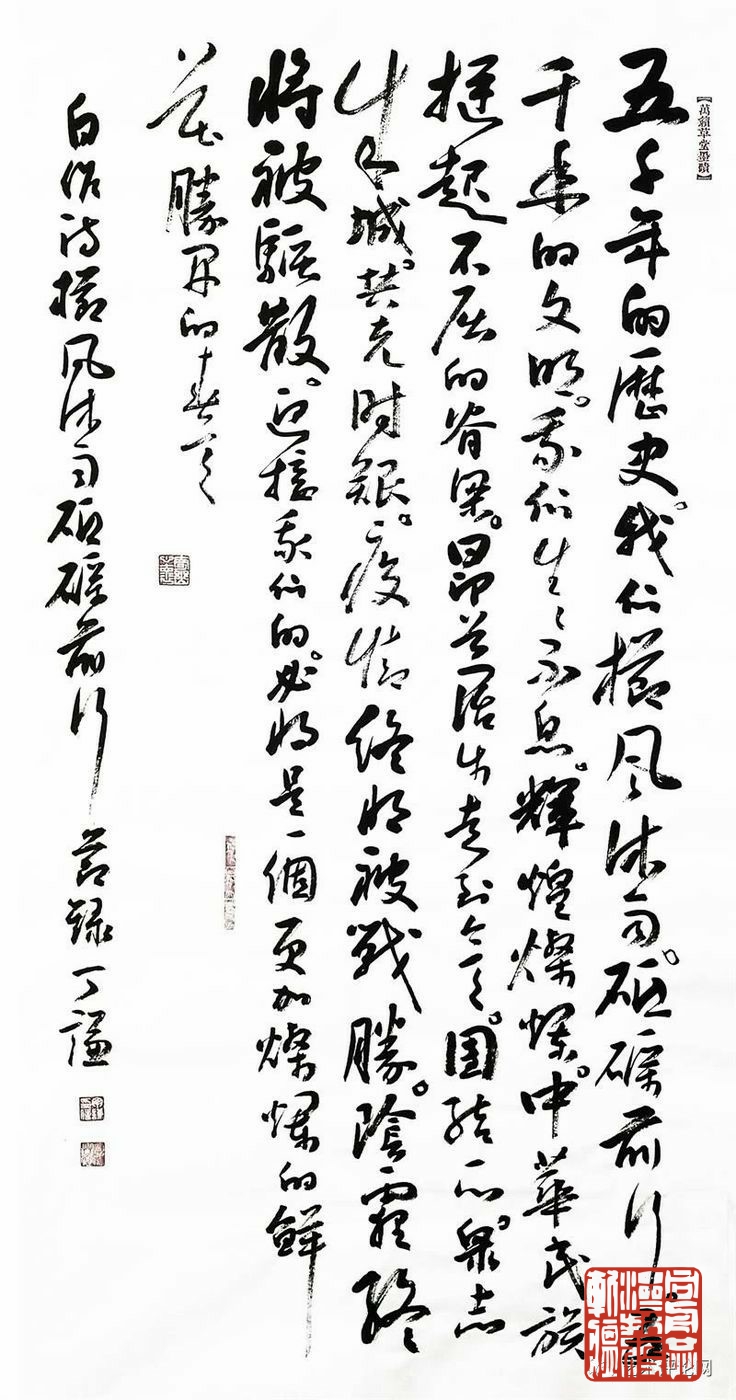 【萬籟草堂墨蹟】
五千年的歷史。我们櫛风沐雨。砥礪前行。
千年的文明。我们生々不息。輝煌燦爛。中華民族
挺起不屈的脊梁。昂首阔步走到今天。團结一心。眾志
成城。共克时艱。疫情终将被戰勝。陰霾終
將被驅散。迎接我们的。必将是一個更加燦爛的鮮
花勝開的春天
自作诗櫛风沐雨砥礪前行 節録 丁謙